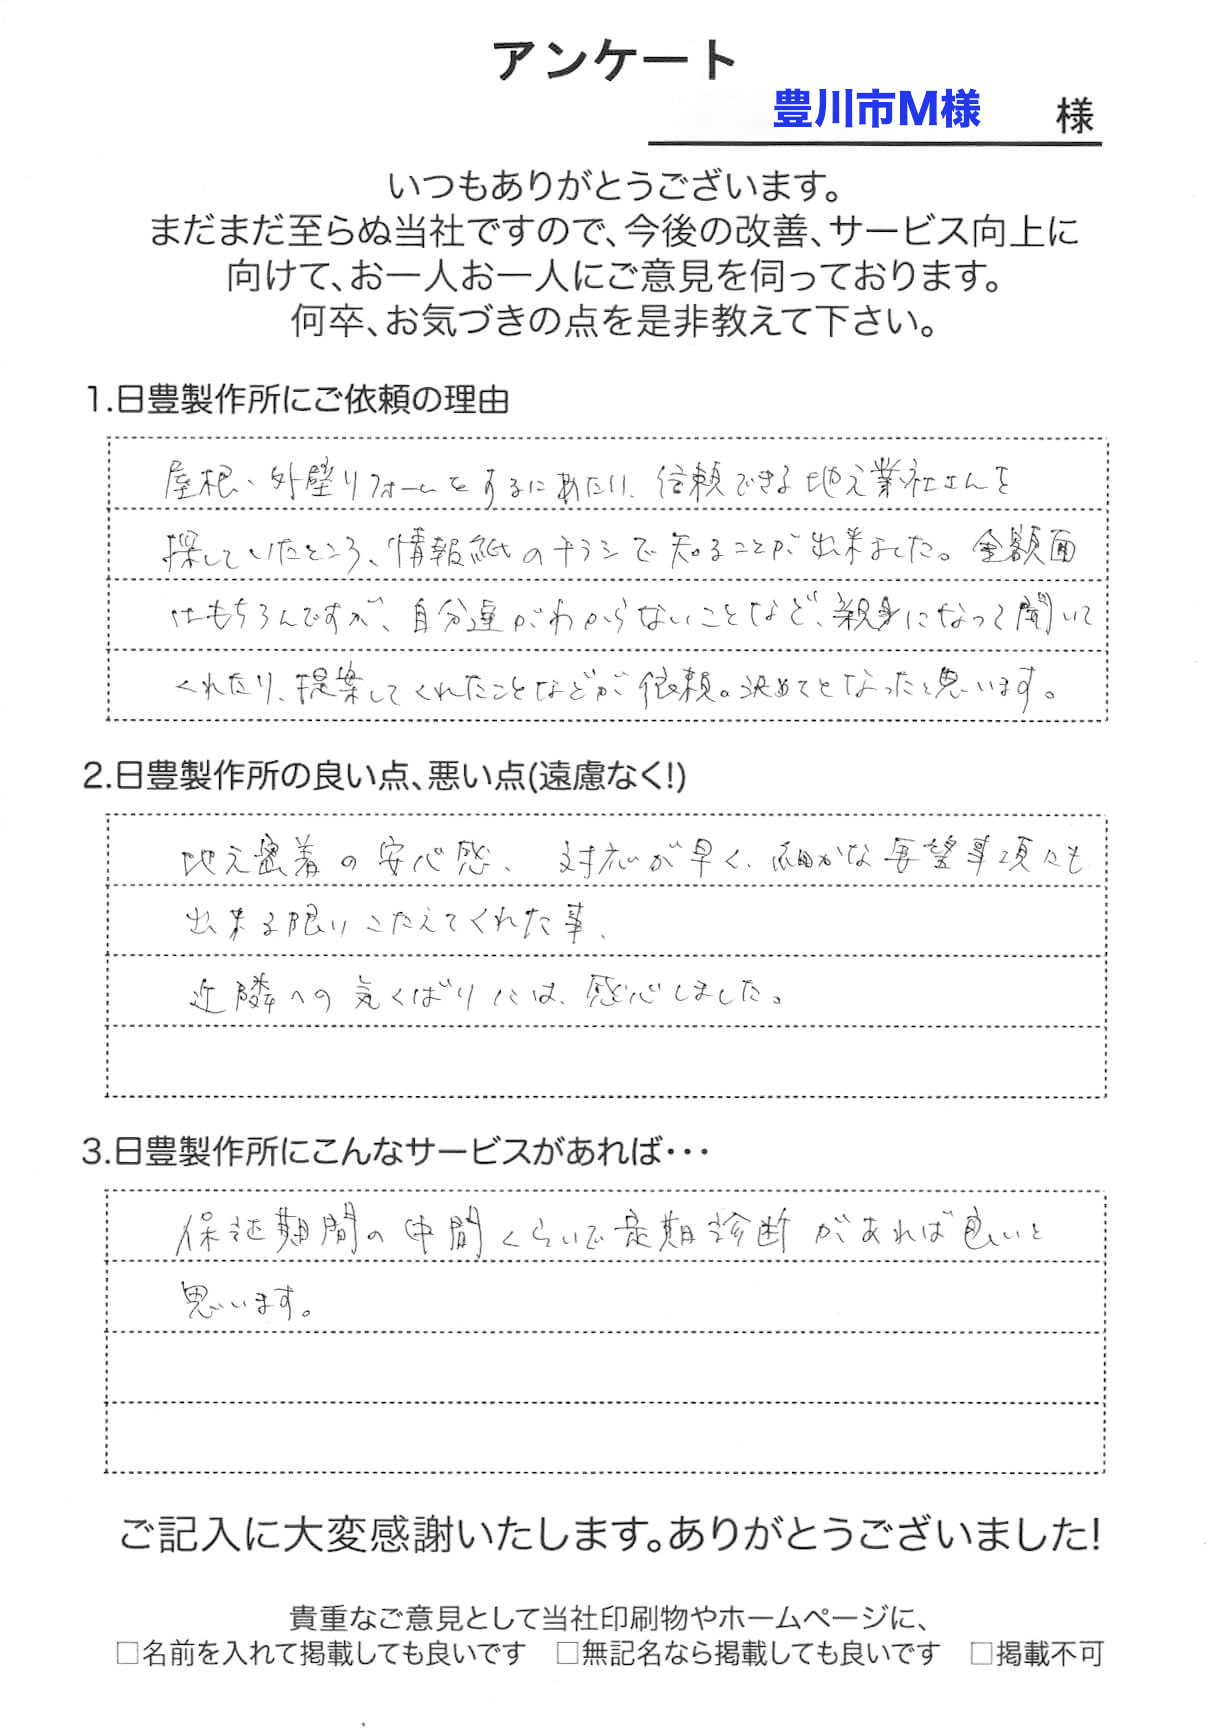 アンケート
豊川市M様 様
いつもありがとうございます。
まだまだ至らぬ当社ですので、今後の改善、サービス向上に
向けて、お一人お一人にご意見を伺っております。
何卒、お気づきの点を是非教えて下さい。
1.日豊製作所にご依頼の理由
屋根、外壁リフォームをするにあたり、信頼できる地元業社さんを
探していたところ、情報紙のチラシで知ることが出来ました。金額面
はもちろんですが、自分達がわからないことなど、親身になって聞いて
くれたり、提案してくれたことなどが依頼の決めてとなったと思います。
2.日豊製作所の良い点、悪い点(遠慮なく!)
地元密着の安心感、対応が早く、細かな要望事項にも
出来る限りこたえてくれた事、
近隣への気くばりには、感心しました。
3.日豊製作所にこんなサービスがあれば･･･
保証期間の中間くらいで定期診断があれば良いと
思います。
ご記入に大変感謝いたします。ありがとうございました!
貴重なご意見として当社印刷物やホームページに、
□名前を入れて掲載しても良いです □無記名なら掲載しても良いです □掲載不可